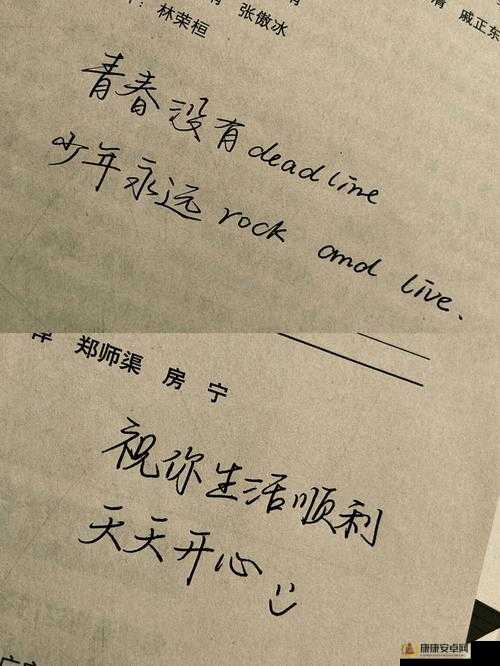 林荣桓 张傲冰
戚正东
青春没有deadline
少年永远 rock and live.
郑师渠 房 宁
祝你生活顺利
天天开心
康康安卓网